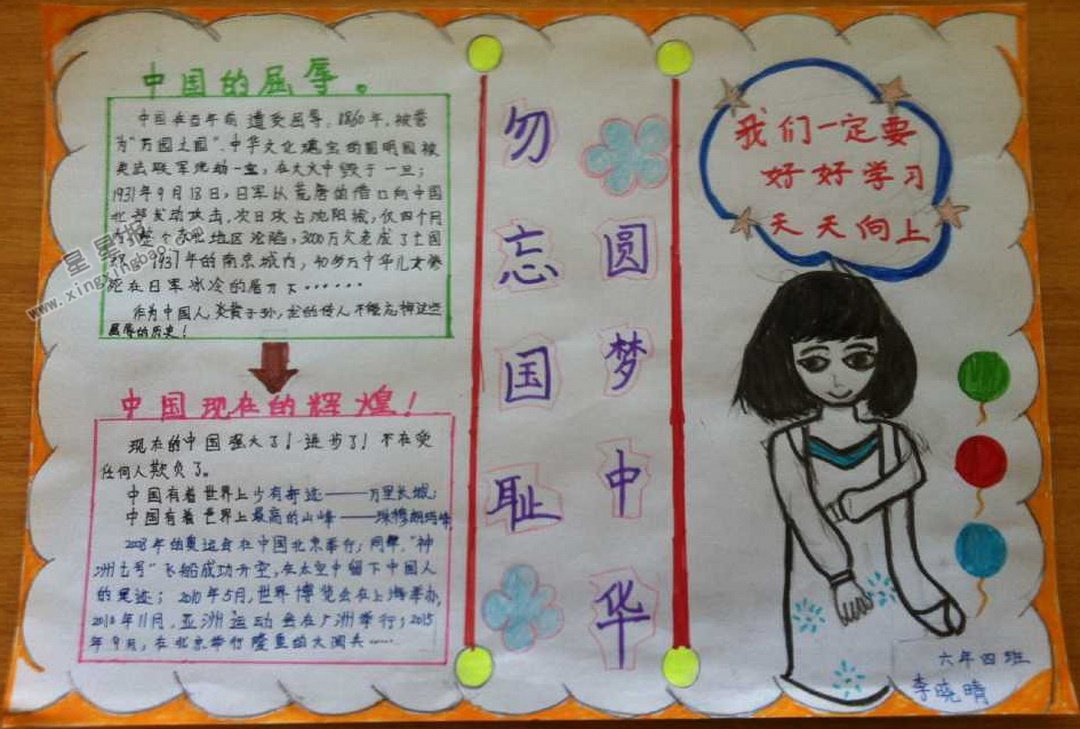 中国的屈辱。
中国在百年前遭受屈辱,1860年,被誉
为"万园之园"、中华文化瑰宝的圆明园被
英法联军洗劫一空,在大火中毁于一旦;
1931年9月18日,日军从荒唐的借口向中国
北部发动攻击,次日攻占沈阳城,仅四个月
整个东北地区沦陷,3000万父老成了亡国
1937年的南京城内,30多万中华儿女惨
死在日军冰冷的屠刀下······
作为中国人,炎黄子孙,龙的传人不能忘掉这些
屈辱的历史!
中国现在的辉煌!
现在的中国强大了!进步了!不在受
任何人欺负了。
中国有着世界上少有奇迹——万里长城;
中国有着世界上最高的山峰——珠穆朗玛峰
2008年的奥运会在中国北京举行;同年,"神
洲七号"飞船成功升空,在太空中留下中国人
的足迹;2010年5月,世界博览会在上海举办,
2010年11月,亚洲运动会在广洲举行;2015
年9月,在北京举行隆重的大阅兵……
勿忘国耻
圆梦中华
我们一定要
好好学习
天天向上
六年四班
李晓晴
星星报
www.xingxingbao.com